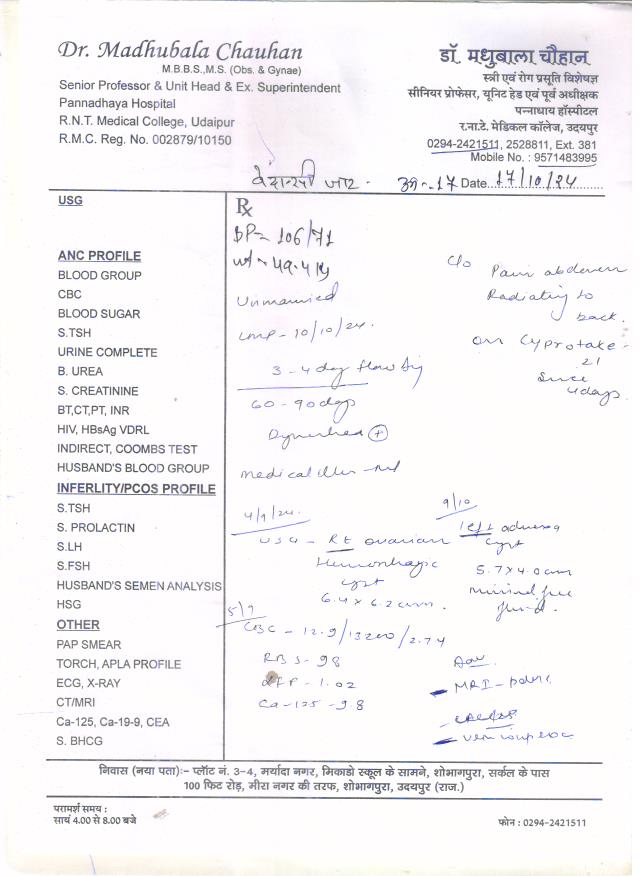 Dr. Madhubala Chauhan
M.B.B.S.,M.S. (Obs. & Gynae)
Senior Professor & Unit Head & Ex. Superintendent
Pannadhaya Hospital
R.N.T. Medical College, Udaipur
R.M.C. Reg. No. 002879/10150
डॉ. मधुबाला चौहान
स्त्री एवं रोग प्रसूति विशेषज्ञ
सीनियर प्रोफेसर, यूनिट हेड एवं पूर्व अधीक्षक
पन्नाधाय हॉस्पीटल
र.ना.टे. मेडिकल कॉलेज, उदयपुर
0294-2421511, 2528811, Ext. 381
Mobile No. : 9571483995
जाट - 17 Date 17/10/24
USG
ANC PROFILE
BLOOD GROUP
CBC
BLOOD SUGAR
S.TSH
URINE COMPLETE
B. UREA
S. CREATININE
BT,CT,PT, INR
HIV, HBsAg VDRL
INDIRECT, COOMBS TEST
HUSBAND'S BLOOD GROUP
INFERLITY/PCOS PROFILE
S.TSH
S. PROLACTIN
S.LH
S.FSH
HUSBAND'S SEMEN ANALYSIS
HSG
OTHER
PAP SMEAR
TORCH, APLA PROFILE
ECG, X-RAY
CT/MRI
Ca-125, Ca-19-9, CEA
S. BHCG
Rx
BP- 106/71
wt - 49.4 kg
Unmarried
LMP - 10/10/24.
3 - 4 day flow
60 - 90 days
+
medical illness
c/o Pain abdomen
Radiating to
back.
on Cyprotake -
21
Since
4 days
4/9/24.
USG - Rt ovarian
Hemorrhagic
cyst
6.4 x 6.2 cm.
9/10
left adnexa
cyst
5.7 x 4.0 cm
minimal free
fluid.
5/9
CBC - 12.9/13200/2.74
RBS - 98
- 1.02
Ca-125 - 9.8
Adv.
- MRI - pelvis
निवास (नया पता):- प्लॉट नं. 3-4, मर्यादा नगर, मिकाडो स्कूल के सामने, शोभागपुरा, सर्कल के पास
100 फिट रोड़, मीरा नगर की तरफ, शोभागपुरा, उदयपुर (राज.)
परामर्श समय :
सायं 4.00 से 8.00 बजे
फोन : 0294-2421511